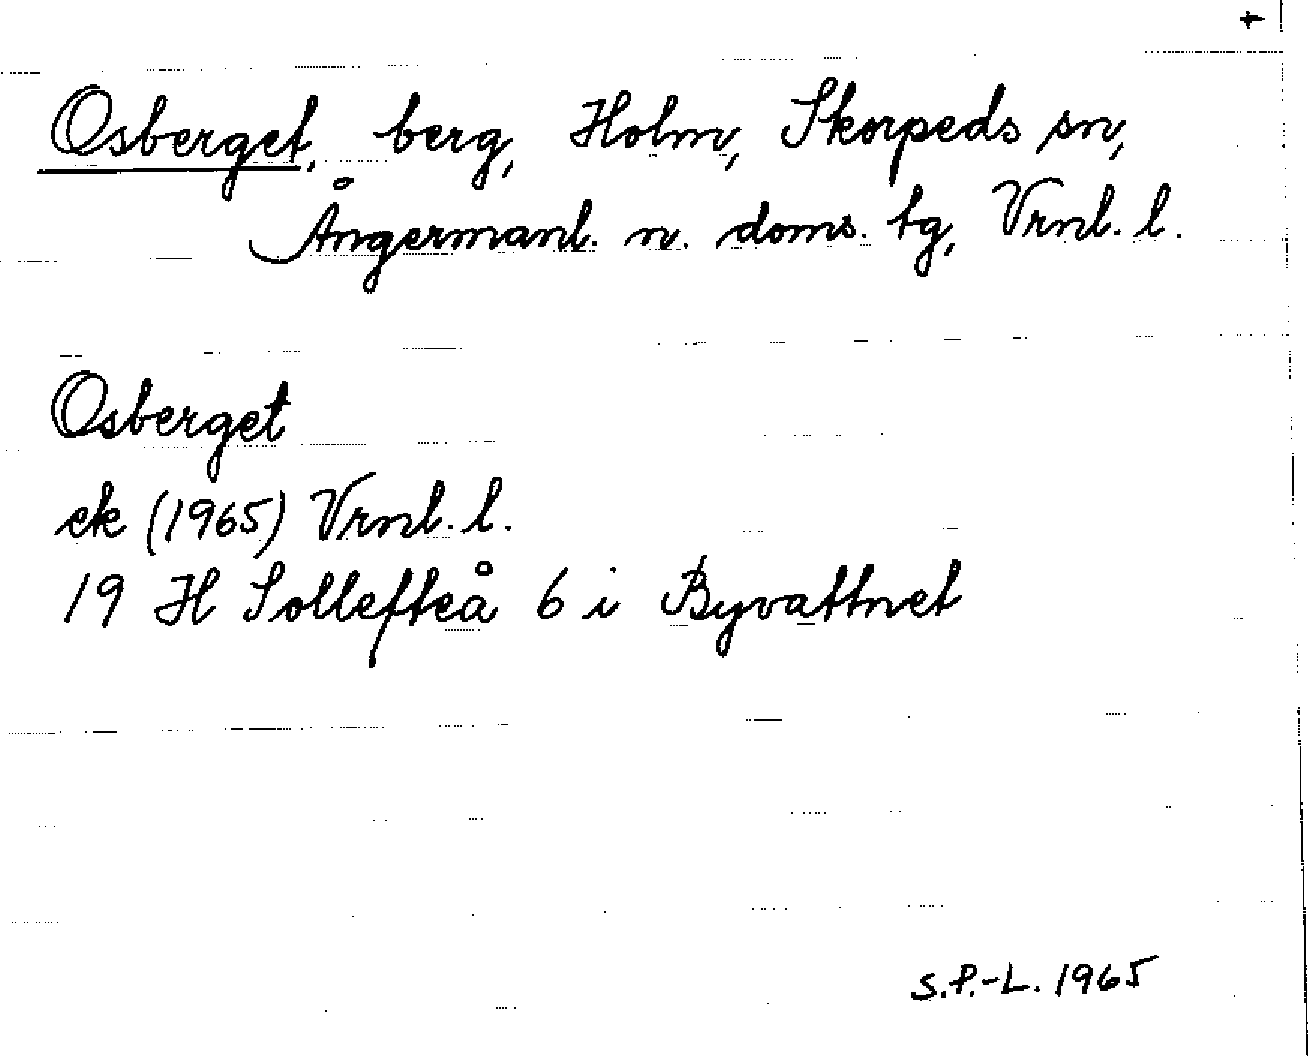 +
Osberget, berg, Holm, Skorpeds sn,
Ångermanl. n. doms. tg, Vrnl. l.
Osberget
ek (1965) Vrnl. l.
19 H Sollefteå 6 i Byvattnet
S.P.-L. 1965